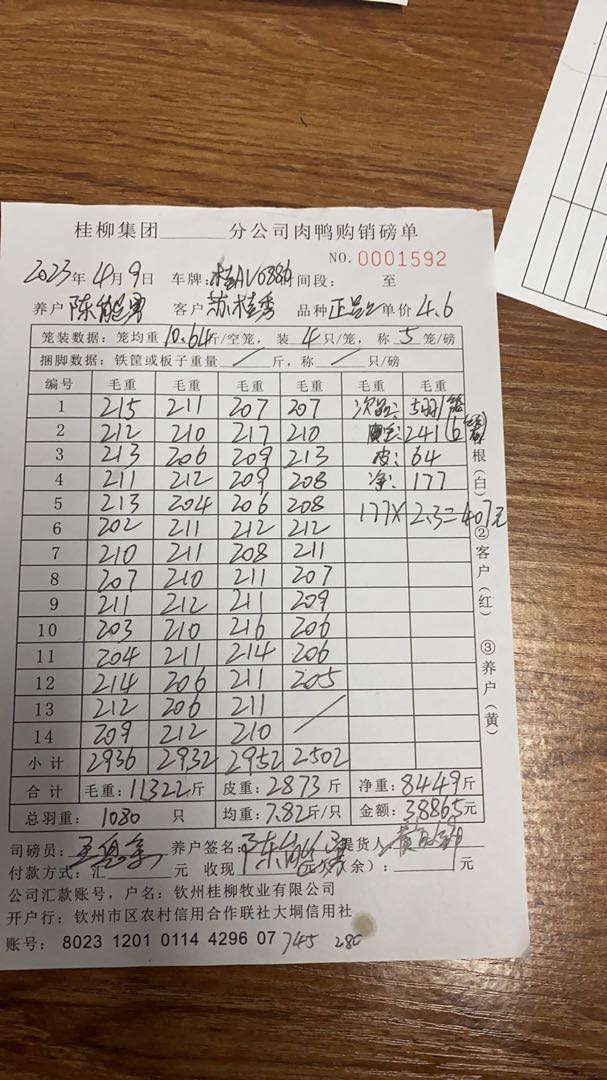 桂柳集团______分公司肉鸭购销磅单
NO. 0001592
2023年4月9日 车牌: 时间段: 至
养户 陈能勇 客户 苏桂秀 品种 正品 单价 4.6
笼装数据:笼均重10.64斤/空笼,装4只/笼,称5笼/磅
捆脚数据:铁筐或板子重量/斤,称/只/磅
编号 毛重 毛重 毛重 毛重 毛重 毛重
1 215 211 207 207 次品:
2 212 210 217 210 241
3 213 206 209 213 皮: 64
4 211 212 209 208 净: 177
5 213 204 206 208 177×2.3=407元
6 202 211 212 212
7 210 211 208 211
8 207 210 211 207
9 211 212 211 209
10 203 210 216 206
11 204 211 214 206
12 214 206 211 205
13 212 206 211 /
14 209 212 210
小计 2936 2932 2952 2502
合计 毛重:11322斤 皮重:2873斤 净重:8449斤
总羽重:1080只 均重:7.82斤/只 金额:38865元
司磅员: 养户签名: 提货人
付款方式:汇______元 收现 余):______元
公司汇款账号,户名:钦州桂柳牧业有限公司
开户行:钦州市区农村信用合作联社大垌信用社
账号:8023 1201 0114 4296 07 745 280
根(白)②客户(红) ③养户(黄)